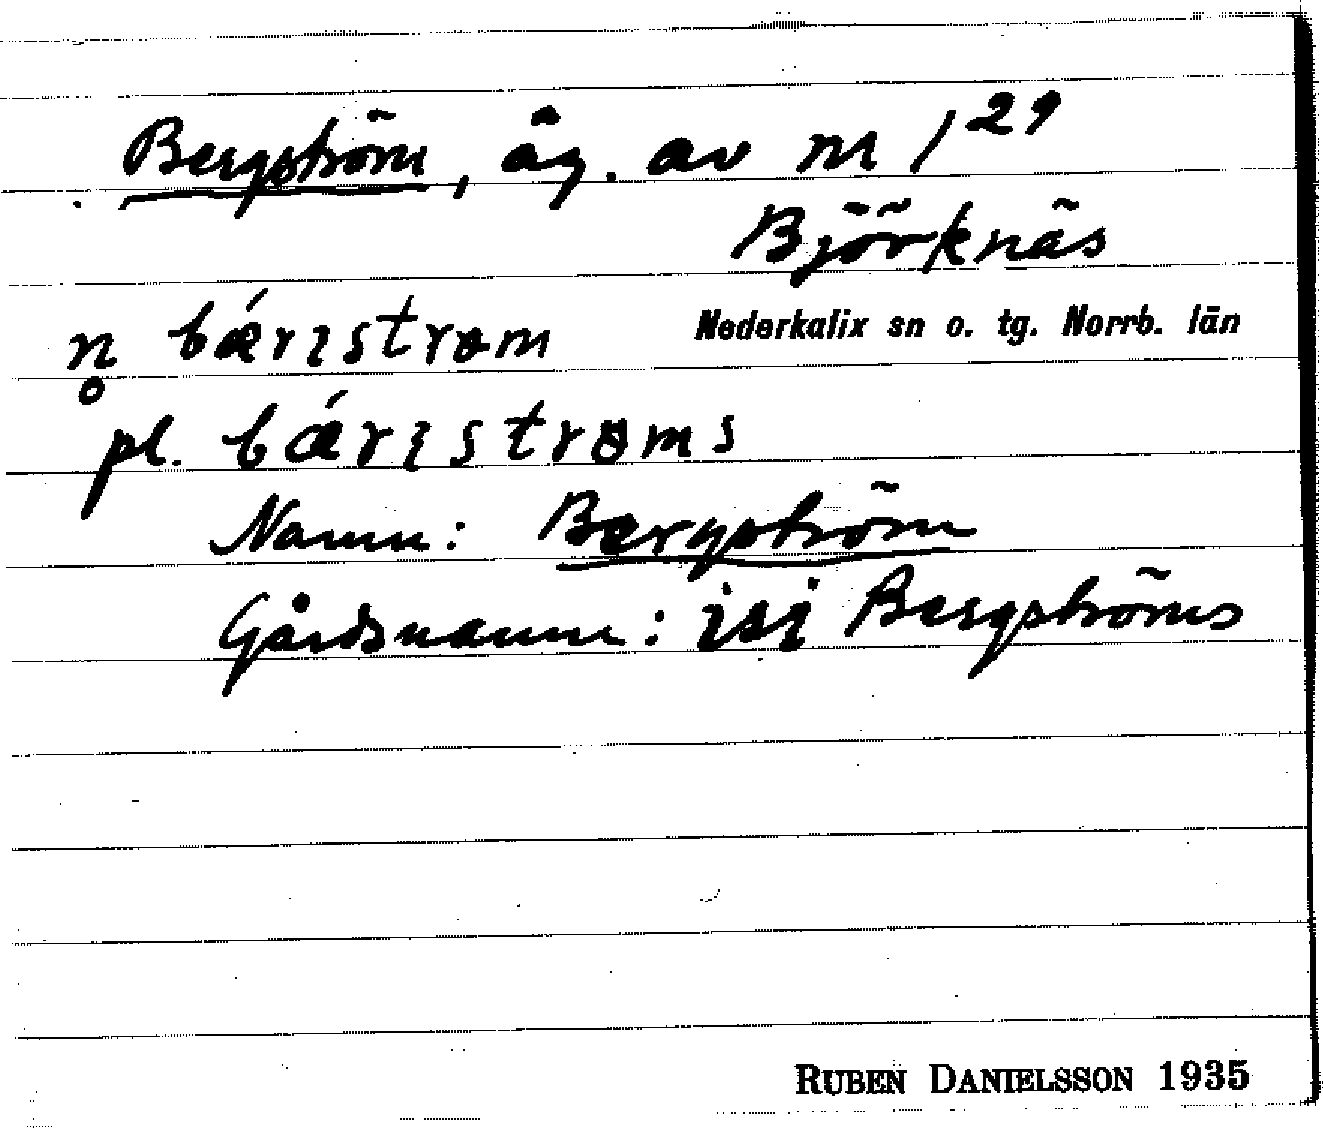 Bergström, äg. av m 1²⁹
Björknäs
Nederkalix sn o. tg. Norrb. län
n̥ bǽrɪstrøm
pl. bǽrɪstrøms
Namn: Bergström
Gårdsnamn: isi Bergströms
RUBEN DANIELSSON 1935